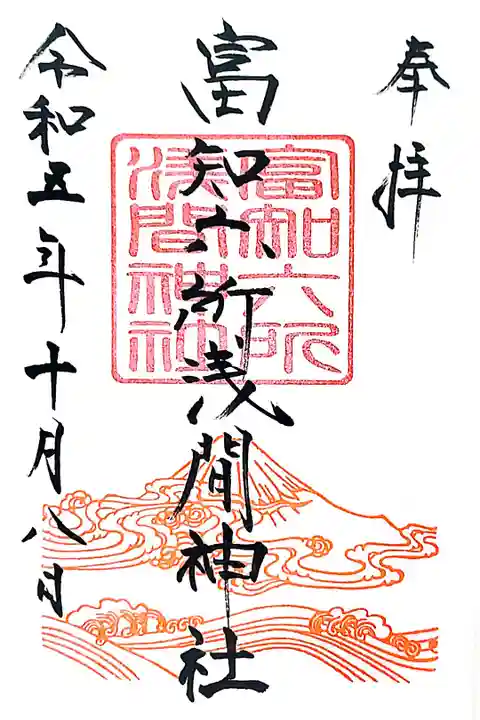 奉拝
富知六所浅間神社
富知六所
浅間神社
令和五年十月八日